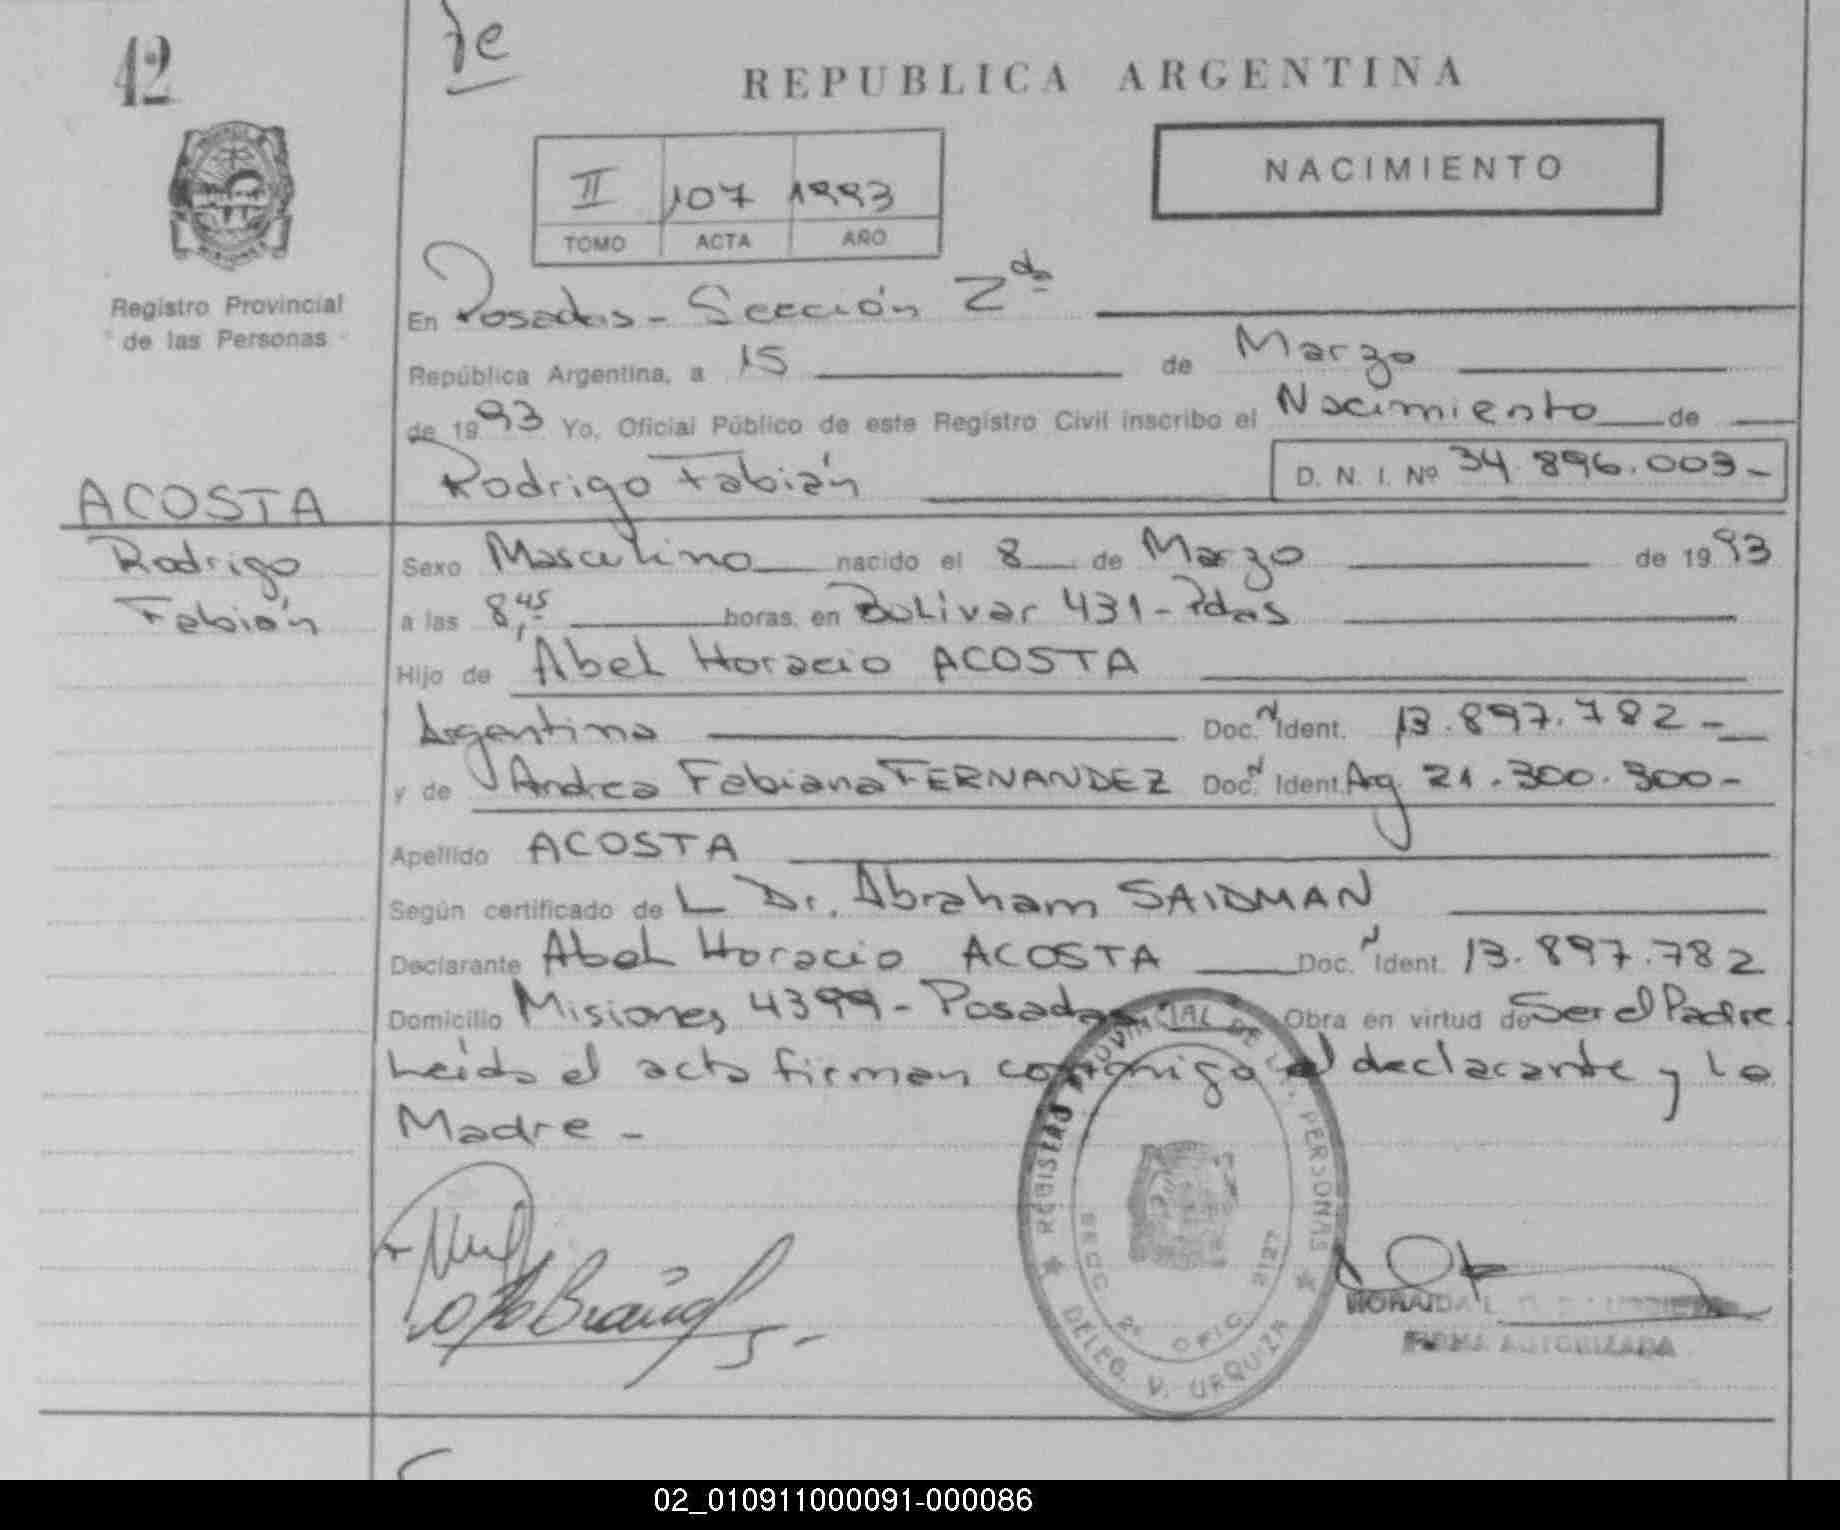 42
REPUBLICA ARGENTINA
II 107 1993
TOMO ACTA AÑO
NACIMIENTO
Registro Provincial
de las Personas
En Posadas - Sección 2da
República Argentina, a 15 de Marzo
de 1993 Yo, Oficial Público de este Registro Civil inscribo el Nacimiento de
Rodrigo Fabián D. N. I. Nº 34.896.003-
ACOSTA
Rodrigo
Fabián
Sexo Masculino nacido el 8 de Marzo de 1993
a las 8,45 horas, en Bolivar 431 - Pdas
Hijo de Abel Horacio ACOSTA
Argentino Doc. Ident. 13.897.782-
y de Andrea Fabiana FERNANDEZ Doc. Ident. Arg 21.300.300-
Apellido ACOSTA
Según certificado de L Dr. Abraham SAIDMAN
Declarante Abel Horacio ACOSTA Doc. Ident. 13.897.782
Domicilio Misiones 4399 - Posadas Obra en virtud de Ser el Padre.
Leída el acta firman conmigo el declarante y la
Madre -
REGISTRO PROVINCIAL DE LAS PERSONAS
SECC. 2º OFIC. 2127
DELEG. V. URQUIZA
FIRMA AUTORIZADA
02_010911000091-000086